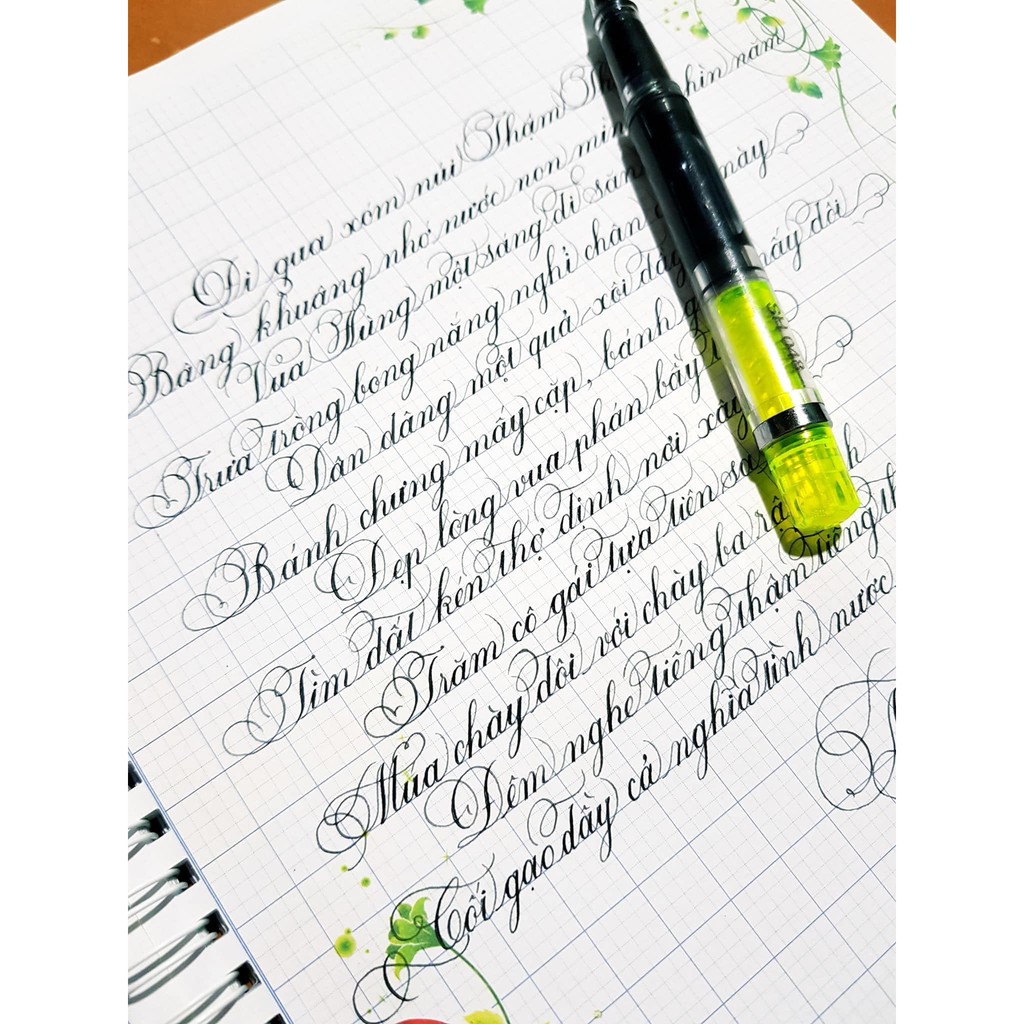 Đi qua xóm núi Thậm Th hìn năm
Bâng khuâng nhớ nước non mìn
Vua Hùng một sáng đi săn
Trưa tròn bóng nắng nghỉ chân này
Dân dâng một quả xôi đầy
Bánh chưng mấy cặp, bánh g mấy đôi
Đẹp lòng vua phán bầy t
Tìm đất kén thợ định nơi xây
Trăm cô gái tựa tiên sa
Múa chày đôi với chày ba rậ nh
Đêm nghe tiếng thậm tiếng th
Cối gạo đầy cả nghĩa tình nước
SH 048